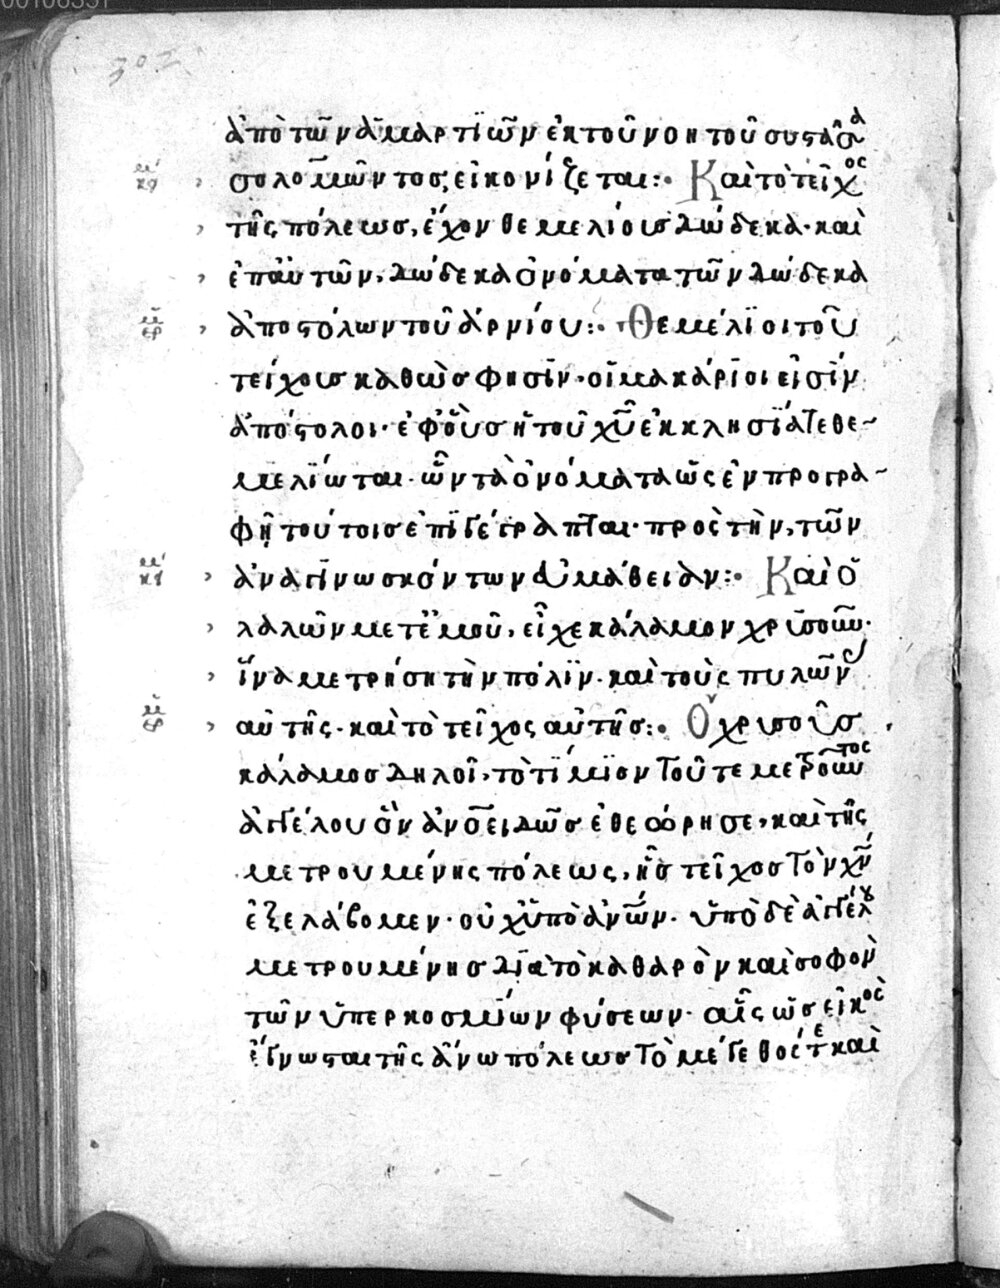 ἀπὸ τῶν ἁμαρτιῶν ἐκ τοῦ νοητοῦ συστᾶσα
κει σολομῶντος, εἰκονίζεται:· Καὶ τὸ τεῖχος
τῆς πόλεως, ἔχον θεμελίους δώδεκα· καὶ
ἐπ' αὐτῶν, δώδεκα ὀνόματα τῶν δώδεκα
ἑρ ἀποστόλων τοῦ ἀρνίου:· Θεμέλιοι τοῦ
τείχους καθώς φησϊν· οἱ μακάριοι εἰσῒν
ἀπόστολοι· ἐφ' οὓς ἡ τοῦ χυ ἐκκλησΐα τεθε-
μελίωται· ὧν τὰ ὀνόματα ὡς ἐν προγρα-
φῇ τούτοις ἐπιγέγραπται· πρὸς τὴν, τῶν
κει ἀναγινωσκόντων εὐμάθειαν:· Καὶ ὁ
λαλῶν μετ' ἐμοῦ, εἶχε κάλαμον χρυσοῦν·
ἵνα μετρήσῃ τὴν πόλϊν· καὶ τοὺς πυλῶνας
ἑρ αὐτῆς· καὶ τὸ τεῖχος αὐτῆς:· Ὁ χρυσοῦς
κάλαμος δηλοῖ, τὸ τίμϊον τοῦ τε μετροῦντος
ἀγγέλου ὃν ἀνοειδῶς ἐθεώρησε, καὶ τῆς
μετρουμένης πόλεως, ἧς τεῖχος τὸν χν
ἐξελάβομεν· οὐχ ὑπὸ ἀνων· ὑπὸ δὲ ἀγγέλου
μετρουμένης δϊὰ τὸ καθαρὸν καὶ σοφὸν
τῶν ὑπερκοσμίων φύσεων· αἷς ὡς εἰκὸς
ἔγνωσται τῆς ἄνω πόλεως τὸ μέγεθός τε καὶ